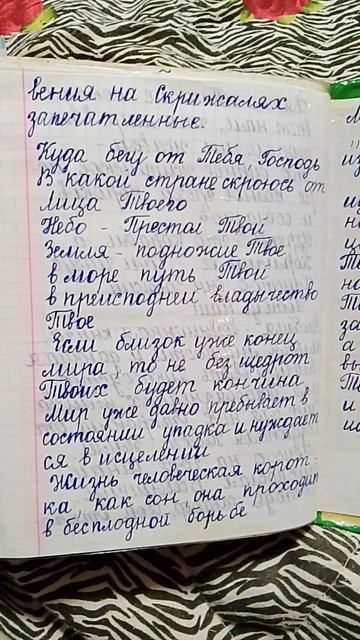 вения на Скрижалях
запечатленные.
Куда бегу от Тебя Господь
В какой стране скроюсь от
Лица Твоего
Небо - Престол Твой
Земля - подножие Твое
в море путь Твой
в преисподней владычество
Твое
Если близок уже конец
мира, то не без щедрот
Твоих будет кончина
Мир уже давно пребывает в
состоянии упадка и нуждает
ся в исцелении
Жизнь человеческая корот-
ка, как сон, она проходит
в бесплодной борьбе